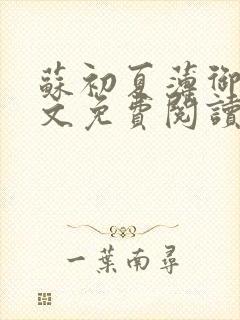 蘇初夏薄御
文免費閱讀
一葉南尋